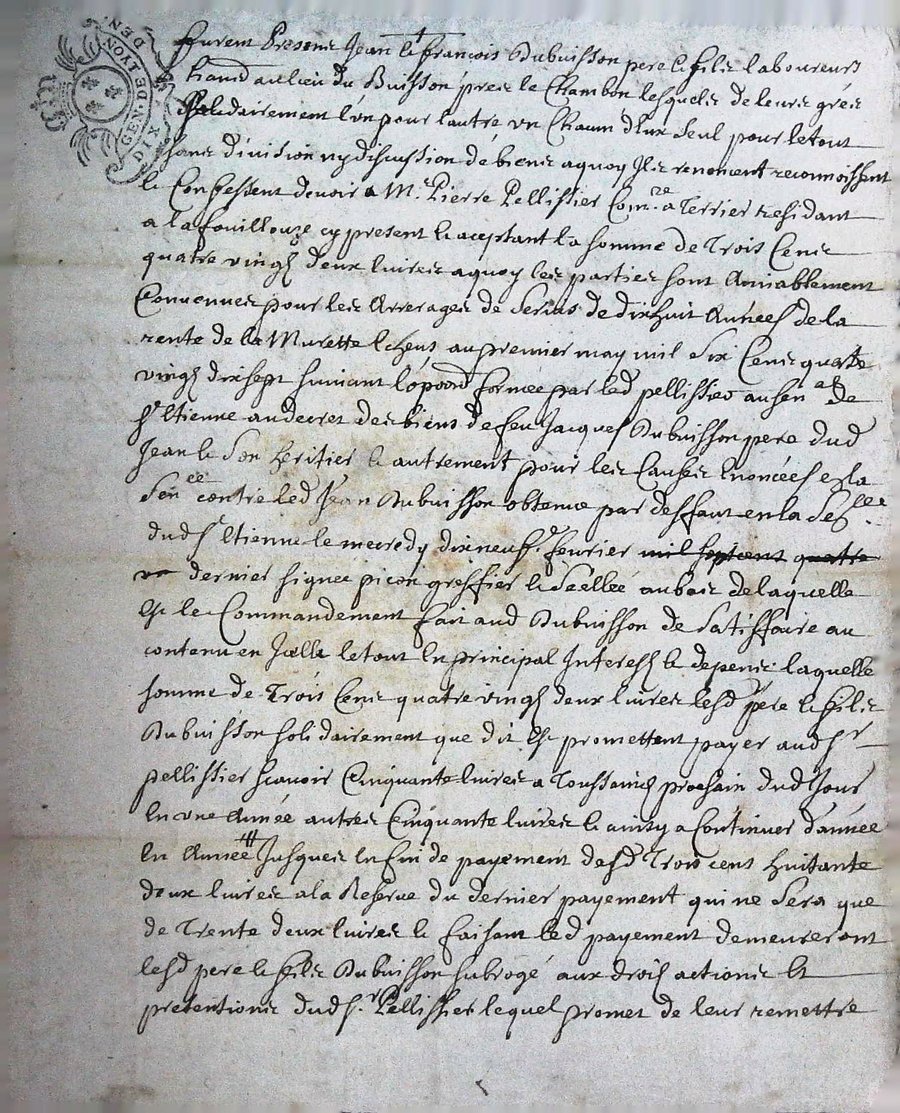 GEN. DE LYON
DIX DEN.
furent Presens Jean & francois Dubuisson pere & fils laboureurs
habitant au lieu du Buisson pres le Chambon lesquels de leurs grés
Solidairement l'un pour l'autre un Chacun d'Eux seul pour le tout
sans division ny discussion de biens a quoy Ils renoncent reconnoissent
& Confessent devoir a Me. Pierre Pellissier Comre. a Terrier residant
a la fouillouze cy present & aceptant la somme de Trois Cens
quatre vingt deux livres a quoy les parties sont Amiablement
Convenues pour les Arrerages de servis de dixhuit Années de la
rente de la Murette Echeus au premier may mil six Cens quatre
vingt dix sept suivant l'opposõn formee par led pellissier au senal de
St Etienne au decret des biens de feu Jacques Dubuisson pere dud
Jean & son heritier & autrement pour les Causes Enoncées en la
Sence contre led Jean Dubuisson obtenue par deffaut en la Senllee
dud St Etienne le mecredy dix neuf fevrier mil sept cent quatre
vn dernier signee picon greffier & scellée au bas de laquelle
est le Commandement fait aud Dubuisson de satisffaire au
contenu en Icelle le tout En principal Interest & depens laquelle
somme de Trois Cens quatre vingt deux livres lesd pere & fils
Dubuisson solidairement que dit est promettent payer aud Sr
pellissier scavoir Cinquante livres a Toussaints prochain dud Jour
En une Année autres Cinquante livres & ainsy a Continuer d'année
En Année Jusques En fin de payement desd Trois cent huitante
deux livres a la Reserve du dernier payement qui ne sera que
de Trente deux livres & faisant led payement demeureront
lesd pere & fils Dubuisson subrogé aux droits actions Et
pretentions dud Sr. Pellissier lequel promet de leur remettre